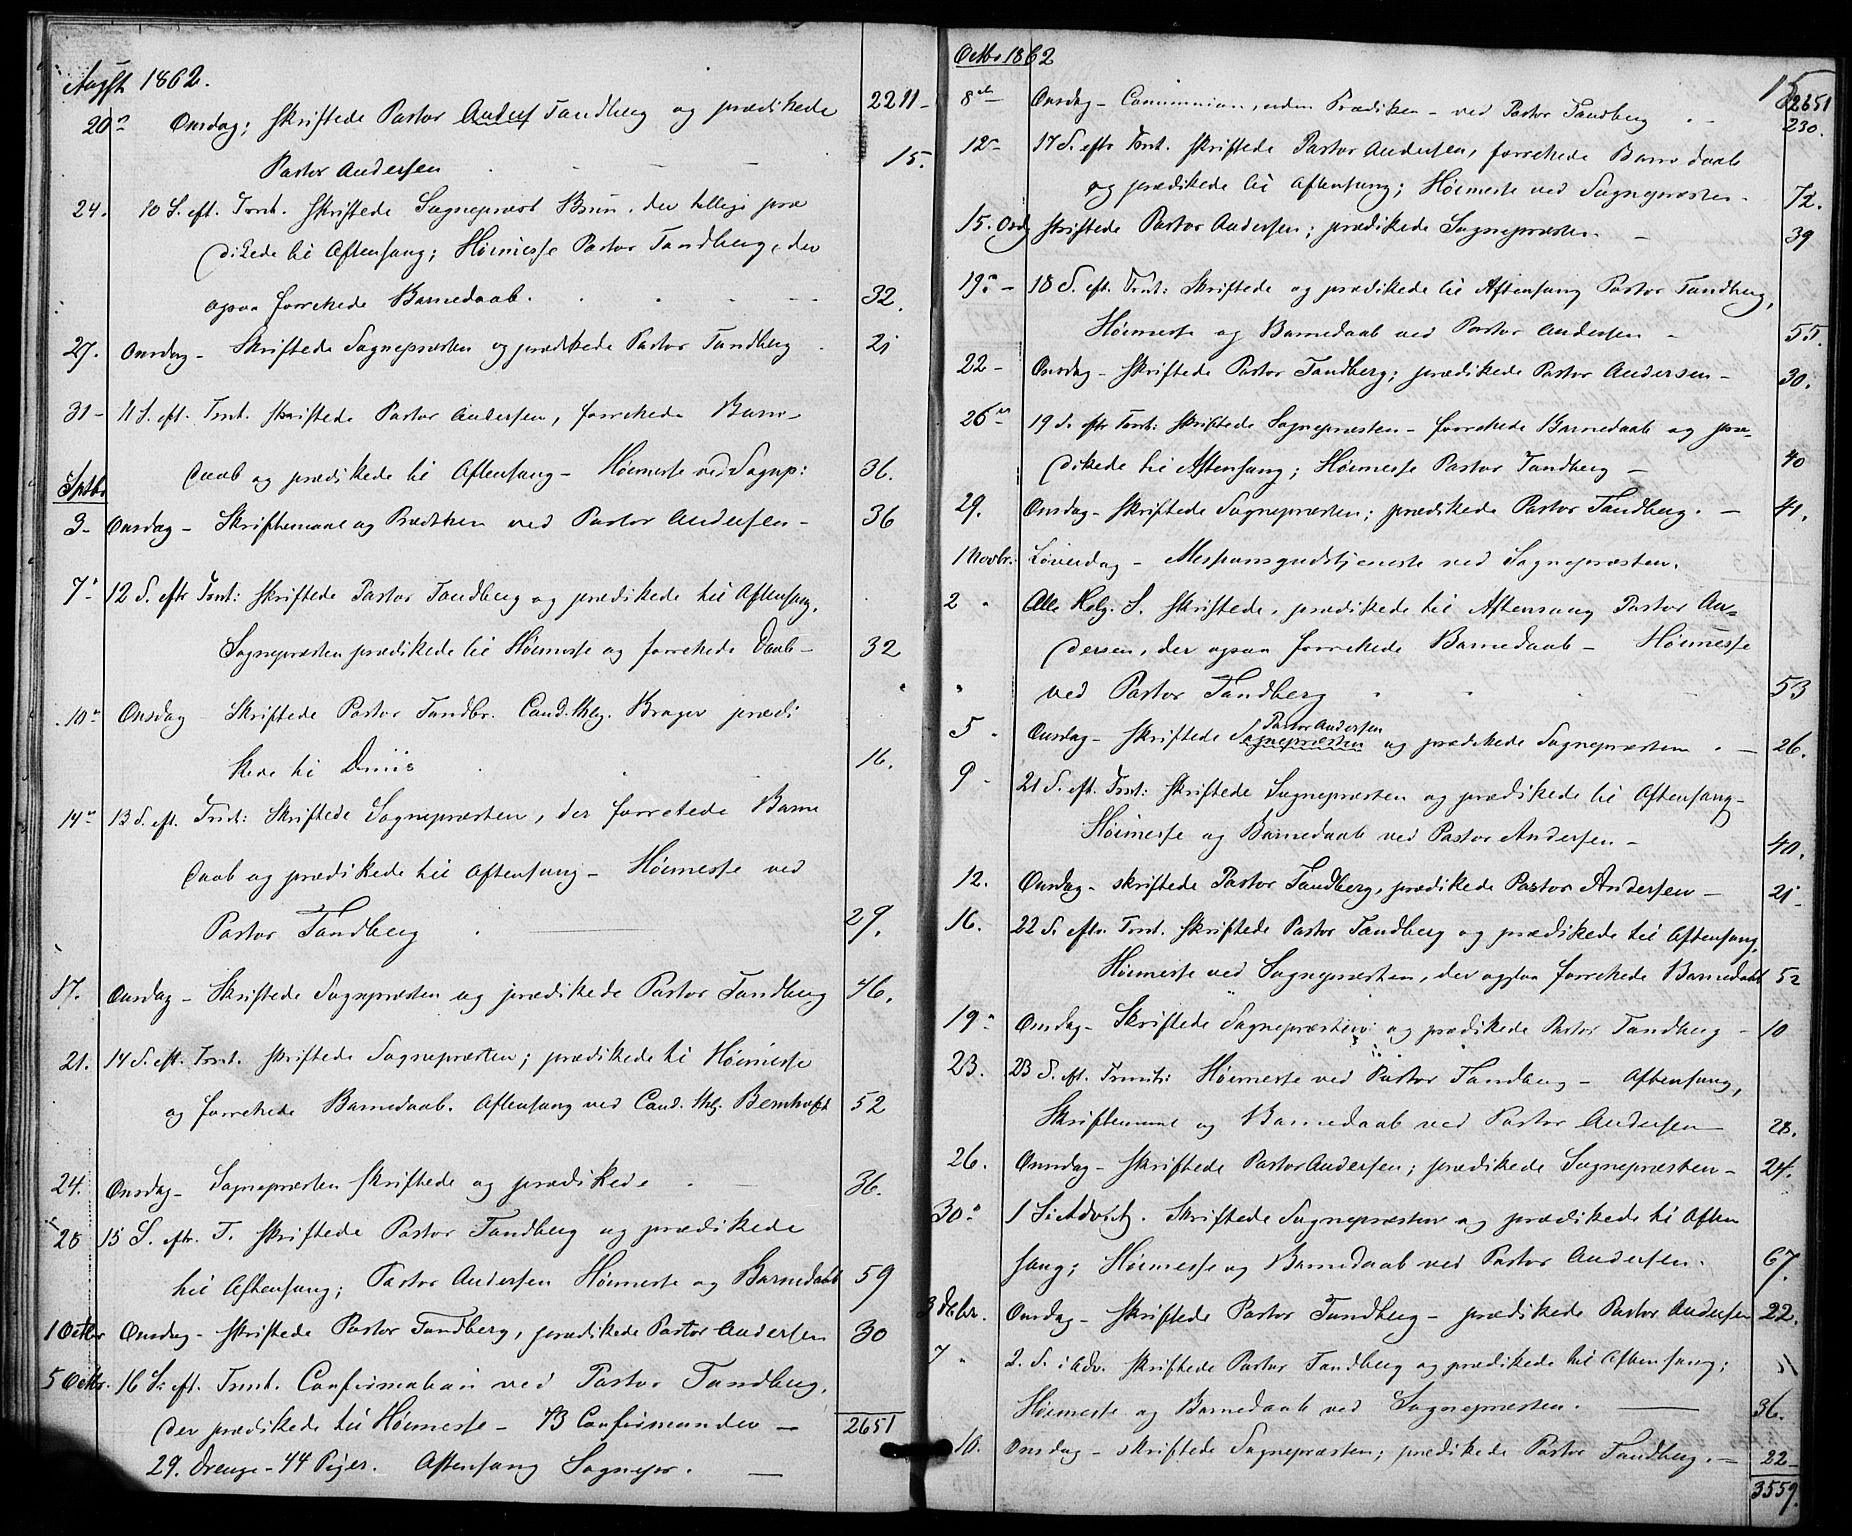 Augst 1862.
2211-
20n Onsdag; skriftede Pastor Anders Tandberg og prædikede
Pastor Andersen 15.
24. 10 S. eft. Trnt. skriftede Sognepræst Bruun, der tillige præ
dikede til Aftensang; Høimesse Pastor Tandberg, der
ogsaa forrettede Barnedaab. 32.
27. Onsdag - Skriftede Sognepræsten og prædikede Pastor Tandberg 21
31- 11 S. eft. Trnt. skriftede Pastor Andersen, forrettede Barne-
daab og prædikede til Aftensang - Høimesse ved Sognep: 36.
Septbr
3- Onsdag - Skriftemaal og Prædiken ved Pastor Andersen - 36
7- 12 S. eftr Trnt: skriftede Pastor Tandberg og prædikede til Aftensang.
Sognepræsten prædikede til Høimesse og forrettede Daab - 32
10n Onsdag - Skriftede Pastor Tandbr. Cand. theol. Brager prædi
kede til 16.
14n 13 S. eft. Trnt: Skriftede Sognepræsten, der forrettede Barne
daab og prædikede til Aftensang - Høimesse ved
Pastor Tandberg 29.
17. Onsdag - Skriftede Sognepræsten og prædikede Pastor Tandberg 46.
21. 14 S. eft. Trnt. skriftede Sognepræsten; prædikede til Høimesse
og forrettede Barnedaab. Aftensang ved Cand. thlg. Bernhoft 52
24. Onsdag - Sognepræsten skriftede og prædikede - 36.
28 15 S. eftr. T. skriftede Pastor Tandberg og prædikede
til Aftensang; Pastor Andersen Høimesse og Barnedaab 59
1 Octbr Onsdag - skriftede Pastor Tandberg, prædikede Pastor Andersen 30
5 Octbr. 16 S. eft. Trnt. Confirmation ved Pastor Tandberg,
der prædikede til Høimesse - 73 Confirmander - 2651
29. Drenge - 44 Piger. Aftensang Sognepr. -
Octbr 1862
15
2651
8de Onsdag - Communion, uden Prædiken - ved Pastor Tandberg 230.
12te 17 S. eftr Trnt. skriftede Pastor Andersen, forrettede Barnedaab
og prædikede til Aftensang; Høimesse ved Sognepræsten. 72.
15. Onsdg skriftede Pastor Andersen; prædikede Sognepræsten. - 39
19n - 18 S. eft. Trnt: Skriftede og prædikede til Aftensang Pastor Tandberg,
Høimesse og Barnedaab ved Pastor Andersen - 55.
22 - Onsdag - skriftede Pastor Tandberg; prædikede Pastor Andersen - 30.
26n 19 S. eftr Trnt: skriftede Sognepræsten - forrettede Barnedaab og præ-
dikede til Aftensang; Høimesse Pastor Tandberg - 40
29. Onsdag - skriftede Sognepræsten; prædikede Pastor Tandberg. - 41.
1 Novbr: Løverdag - Messgudstjeneste ved Sognepræsten.
2 " Alle Helg. S. skriftede, prædikede til Aftensang Pastor An-
dersen, der ogsaa forrettede Barnedaab - Høimesse
" ved Pastor Tandberg 53
Pastor Andersen
5 " Onsdag - skriftede Sognepræsten og prædikede Sognepræsten. - 26.
9 - 21 S. eft. Trnt: skriftede Sognepræsten og prædikede til Aftensang -
Høimesse og Barnedaab ved Pastor Andersen - 40.
12. Onsdag - skriftede Pastor Tandberg, prædikede Pastor Andersen - 21-
16. 22 S. eftr. Trnt. skriftede Pastor Tandberg og prædikede til Aftensang,
Høimesse ved Sognepræsten, der ogsaa forrettede Barnedaab 52
19n Onsdag - Skriftede Sognepræsten og prædikede Pastor Tandberg - 10
23. 23 S. eft. Trinit: Høimesse ved Pastor Tandberg - Aftensang,
Skriftemaal og Barnedaab ved Pastor Andersen 28.
26. Onsdag - skriftede Pastor Andersen; prædikede Sognepræsten - 24.
30n 1 S. i Advent. Skriftede Sognepræsten og prædikede til Aften
sang; Høimesse og Barnedaab ved Pastor Andersen. 67.
3 Debr. Onsdag - skriftede Pastor Tandberg - prædikede Pastor Andersen 22.
7 " 2. S. i Adv. skriftede Pastor Tandberg og prædikede til Aftensang;
Høimesse og Barnedaab ved Sognepræsten. - 36.
10. Onsdag - skriftede Sognepræsten; prædikede Pastor Tandberg. - 22-
3559.